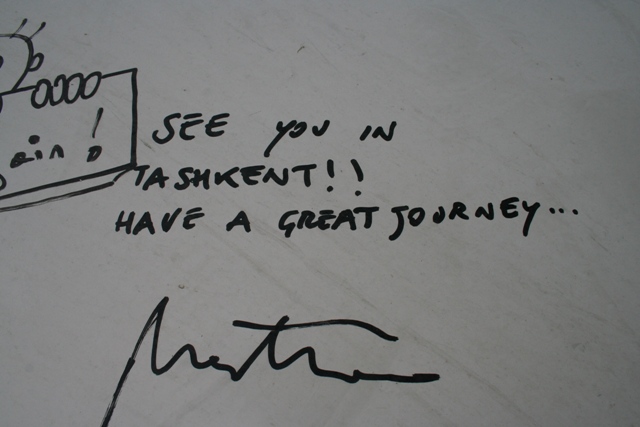 SEE YOU IN
TASHKENT!!
HAVE A GREAT JOURNEY...